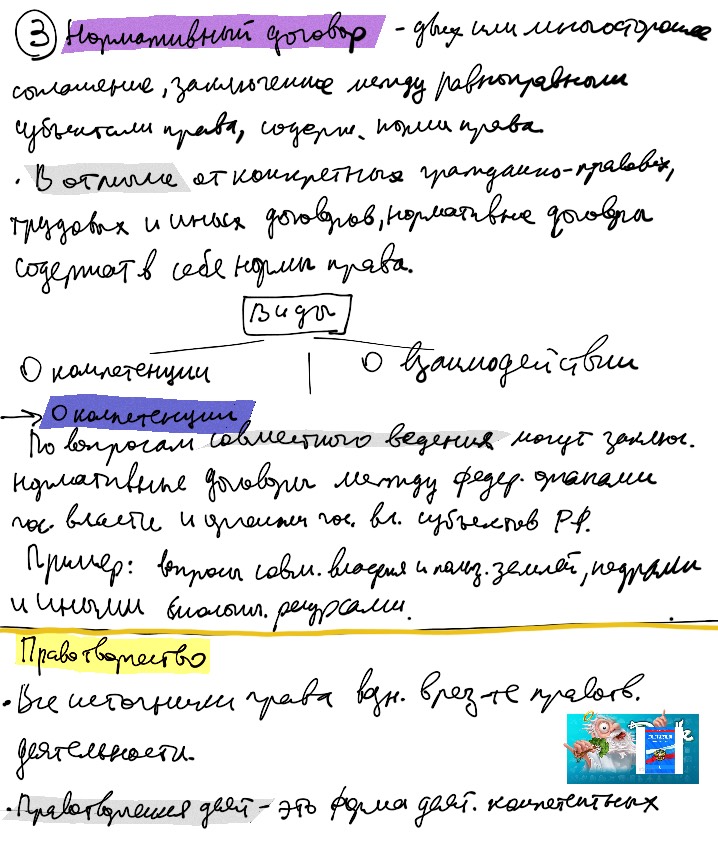 ③ Нормативный договор - двух или многостороннее
соглашение, заключенное между равноправными
субъектами права, содерж. нормы права.
• В отличие от конкретных гражданско-правовых,
трудовых и иных договоров, нормативные договоры
содержат в себе нормы права.
Виды
О компетенции | О взаимодействии
→ О компетенции
По вопросам совместного ведения могут заключ.
нормативные договоры между федер. органами
гос. власти и органами гос. вл. субъектов РФ.
Пример: вопросы совм. владения и польз. землей, недрами
и иными биологич. ресурсами.
Правотворчество
• Все источники права возн. в рез-те правотв.
деятельности.
• Правотворческая деят - это форма деят. компетентных